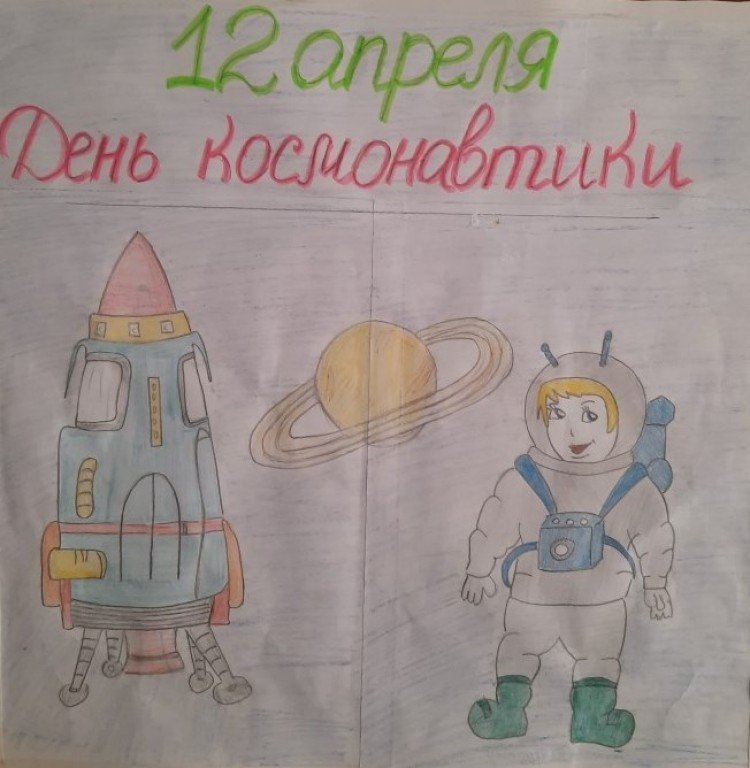 12 апреля
День космонавтики